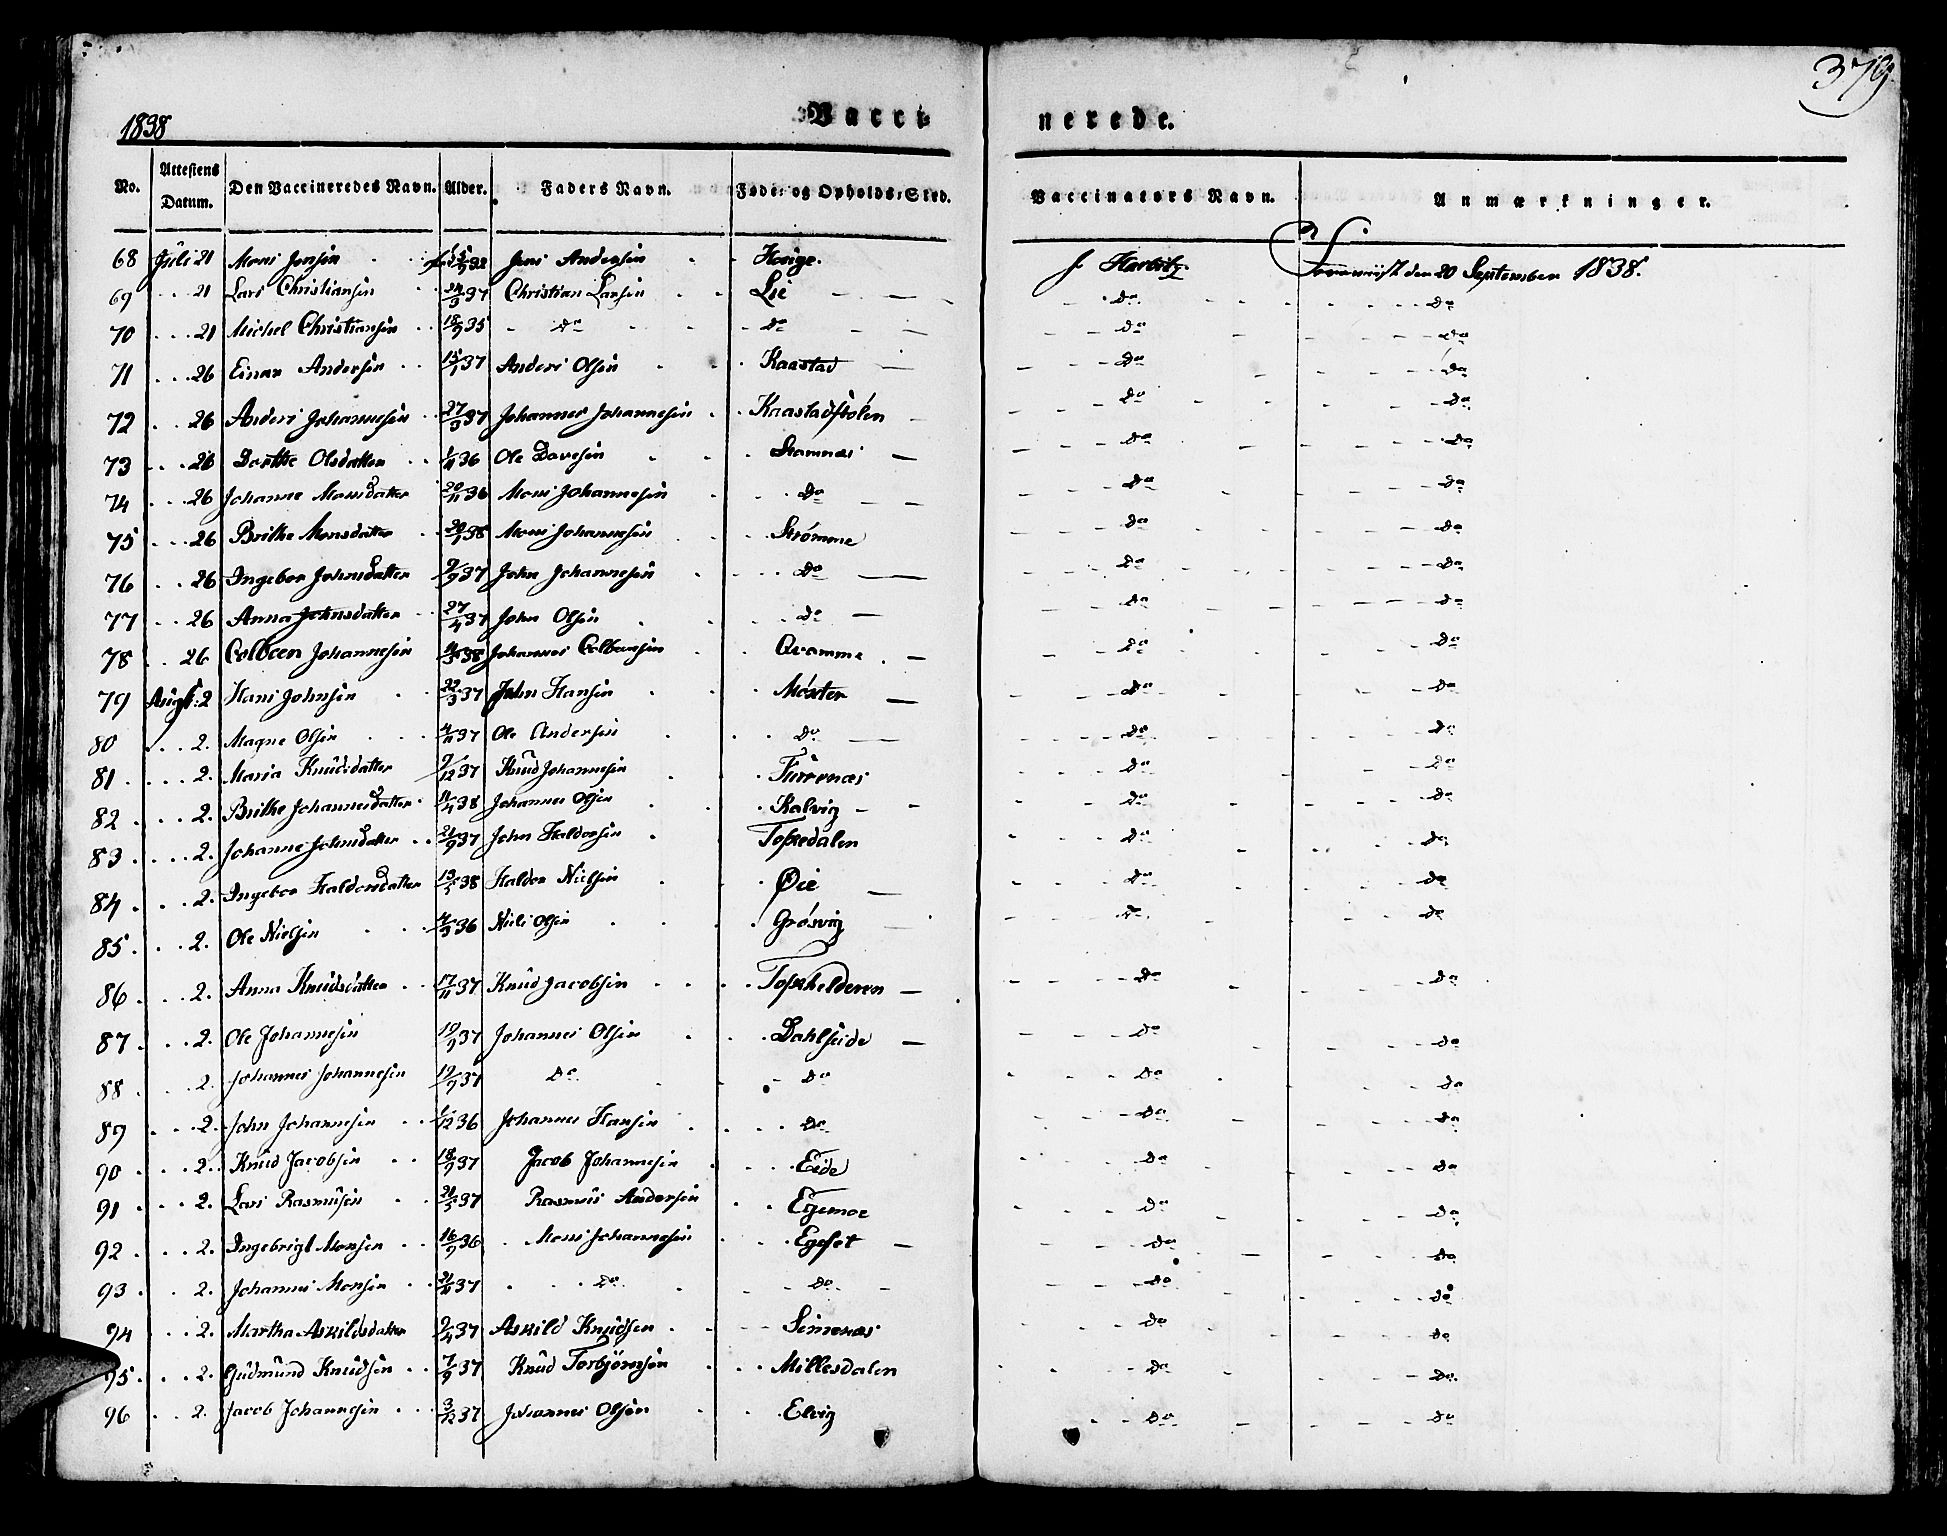 379
1838 Vacci- nerede.
No. Attestens Datum. Den Vaccineredes Navn. Alder. Faders Navn. Føde- og Opholds-Sted. Vaccinators Navn. Anmærkninger.
68 Juli 21 Mons Jensen 32 Jens Andersen Harbitz den 20 September 1838.
69 21 Lars Christiansen 24/3 37 Christian Larsen Lie do do
70 21 Michel Christiansen 18/9 35 do do do do
71 26 Einar Andersen 15/1 37 Anders Olsen Kaastad do do
72 26 Anders Johannesen 27/3 37 Johannes Johannesen Kaastadstølen do do
73 26 Dorthe Olsdatter 36 Ole Davesen Stamnæs do do
74 26 Johanne Monsdatter 20/11 36 Mons Johannesen do do do
75 26 Brithe Monsdatter 38 Mons Johannesen Strømme do do
76 26 Ingebor Johnsdatter 9/9 37 John Johannesen do do do
77 26 Anna Johnsdatter 27/4 37 John Olsen do do do
78 26 Colbeen Johannesen 38 Johannes Colbensen Qvamme do do
79 Augt: 2 Hans Johnsen 22/3 37 John Hansen Møster do do
80 2. Magne Olsen 4/11 37 Ole Andersen do do do
81 2. Maria Knudsdatter 9/12 37 Knud Johannesen Furrenæs do do
82 2. Brithe Johannesdatter 11/4 38 Johannes Olsen Kalvig do do
83 2. Johanne Johnsdatter 21/9 37 John Haldorsen Tossedalen do do
84 2. Ingebor Haldorsdatter 13/5 38 Haldor Nielsen Øie do do
85 2. Ole Nielsen 36 Niels Olsen Grøsvig do do
86 2. Anna Knudsdatter 17/11 37 Knud Jacobsen do do
87 2. Ole Johannesen 19/9 37 Johannes Olsen Dahlseide do do
88 2. Johannes Johannesen 19/9 37 do do do do
89 2. John Johannesen 1/12 36 Johannes Hansen do do do
90 2. Knud Jacobsen 18/9 37 Jacob Johannesen Eide do do
91 2. Lars Rasmusen 21/5 37 Rasmus Andersen Egemoe do do
92 2. Ingebrigt Monsen 16/9 36 Mons Johannesen Egeset do do
93 2. Johannes Monsen 37 do do do do
94 2. Martha Askildsdatter 9/4 37 Askild Knudsen Simenæs do do
95 2. Gudmund Knudsen 7/9 37 Knud Torbjørnsen Millesdalen do do
96 2. Jacob Johannesen 3/12 37 Johannes Olsen Elvig do do